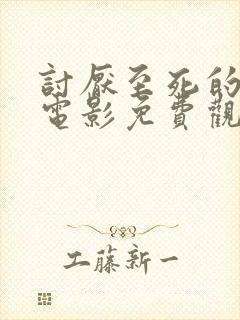 討厭至死的
電影免費觀
工藤新一